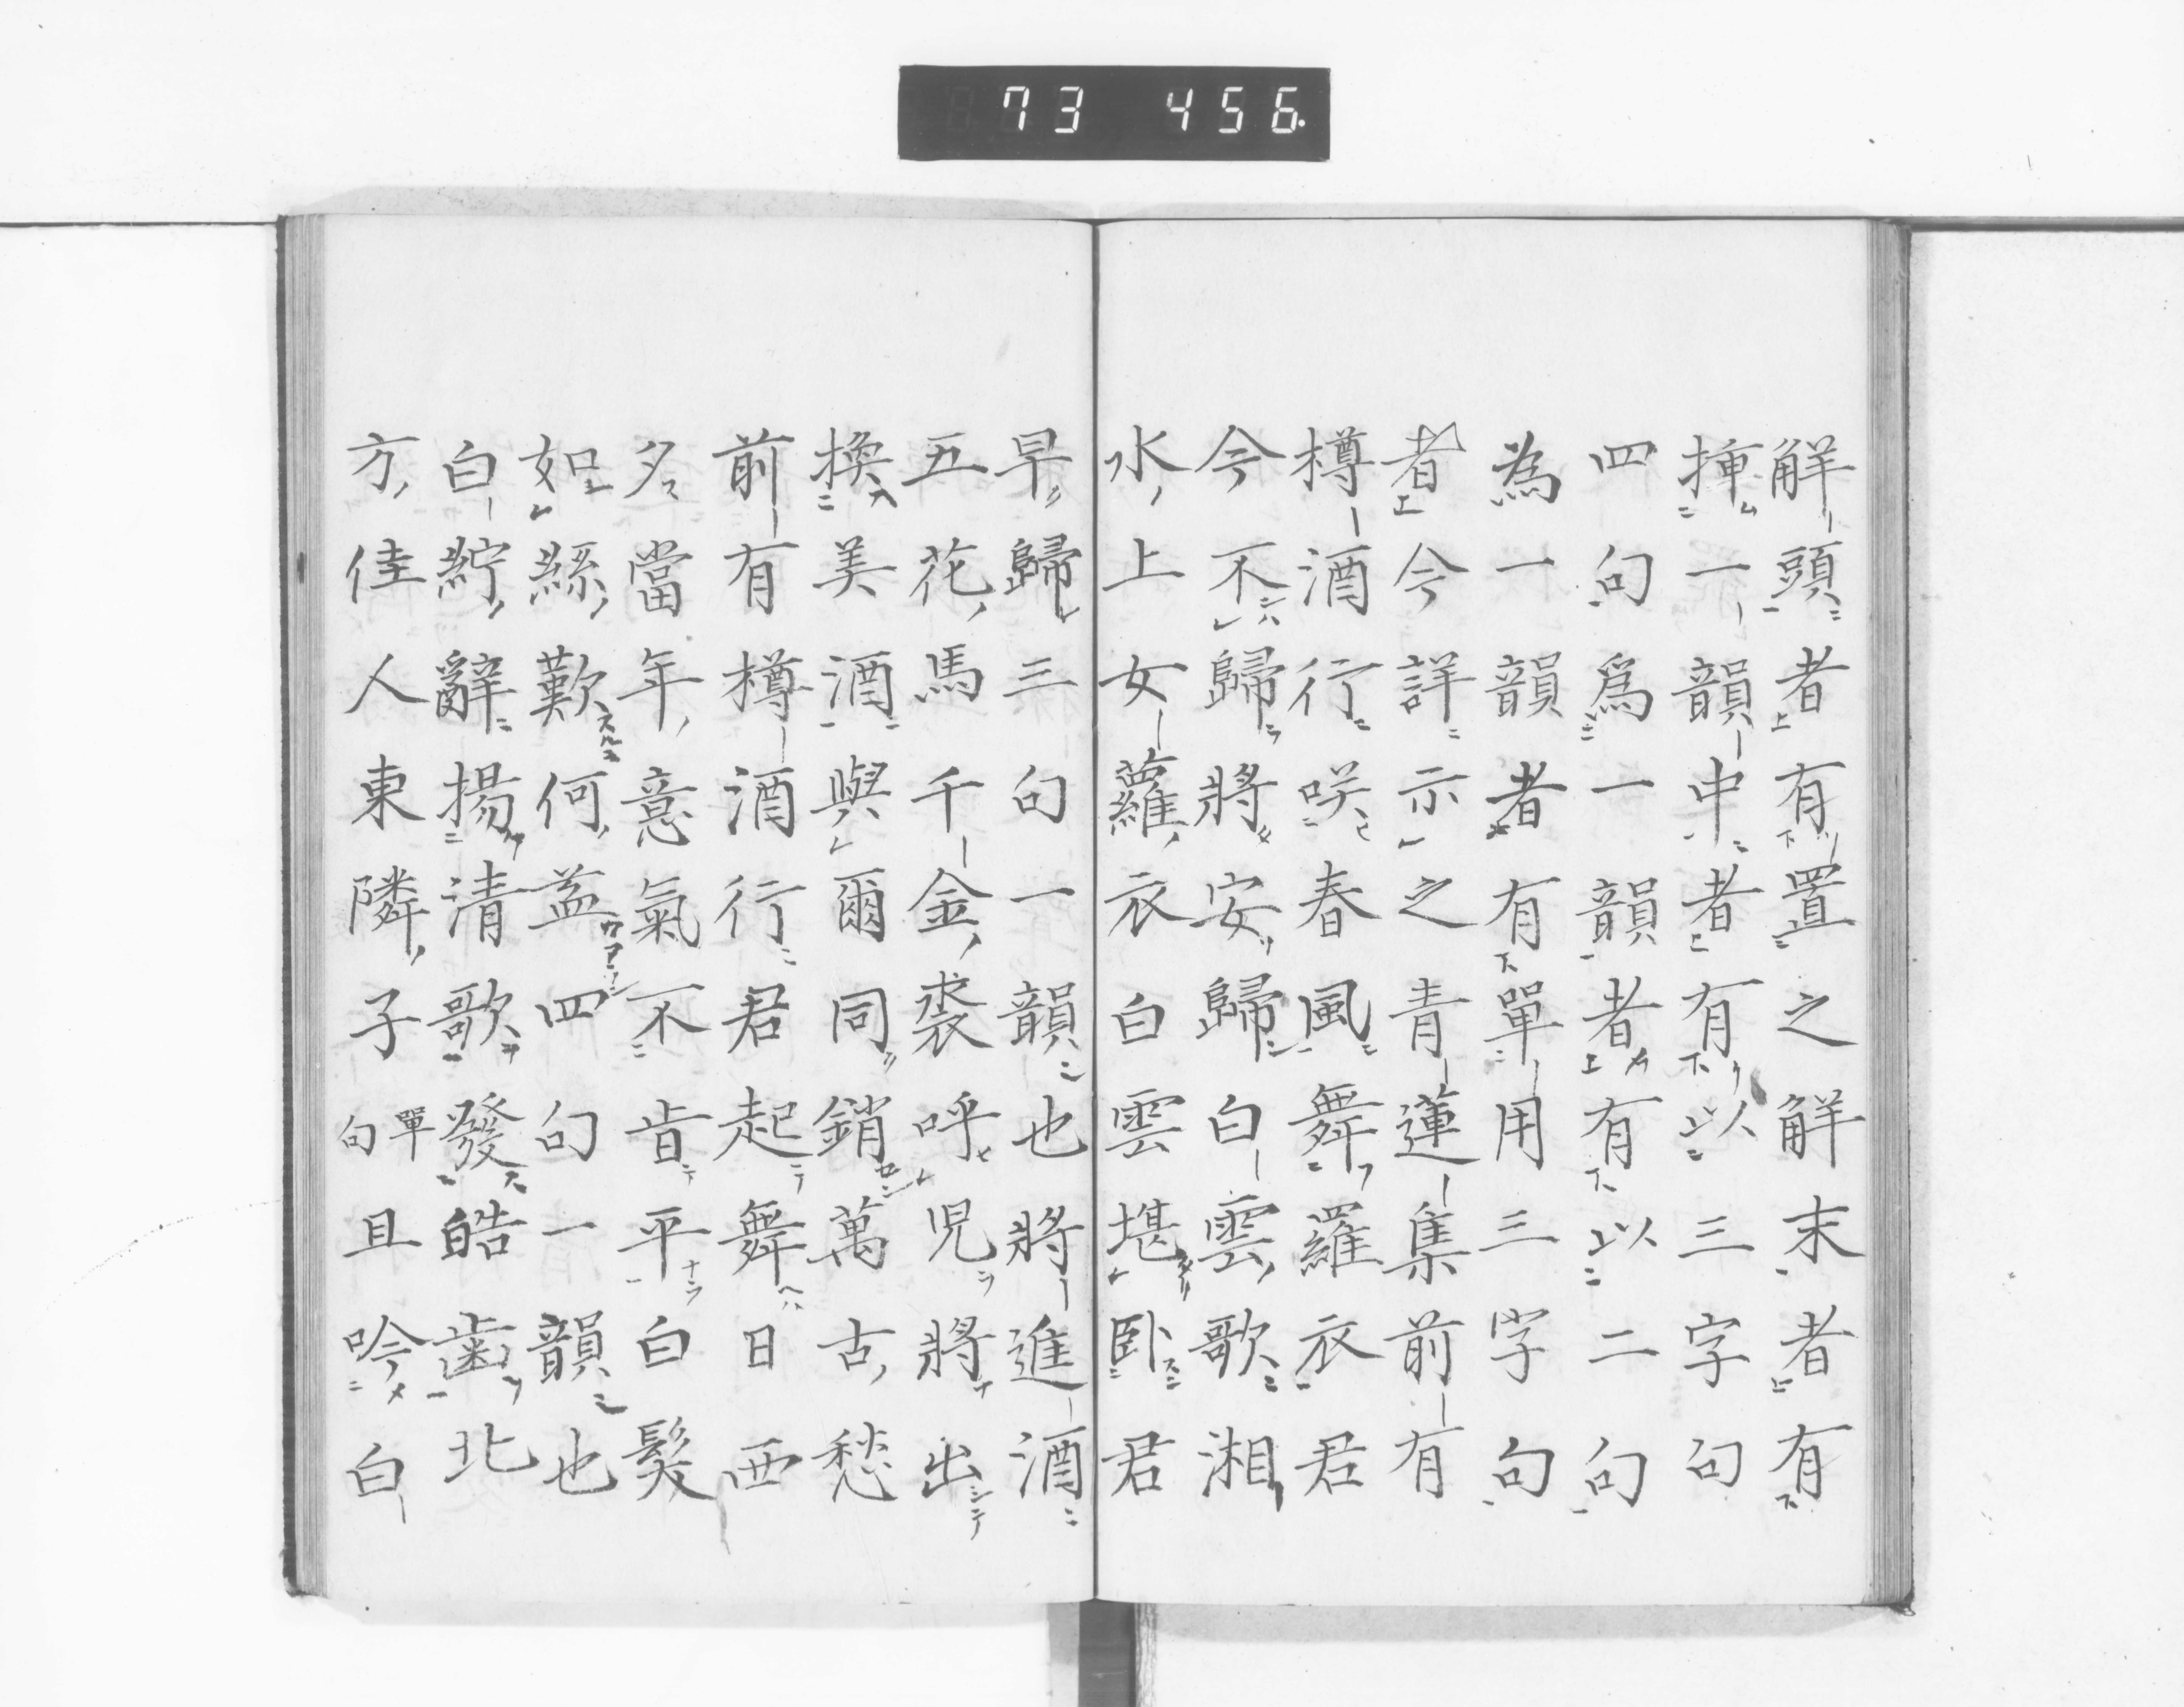 73 456.
解頭者有置之解末者有
揷一韻中者有以三字句
四句爲一韻者有以二句
為一韻者有單用三字句
者今詳示之青蓮集前有
樽酒行咲春風舞羅衣君
今不歸將安歸白雲歌湘
水上女蘿衣白雲堪臥君
早歸三句一韻也將進酒
五花馬千金裘呼児將出
換美酒與爾同銷萬古愁
前有樽酒行君起舞日西
夕當年意氣不肯平白髮
如絲歎何益四句一韻也
白紵辭揚清歌發皓齒北
方佳人東隣子單句且吟白